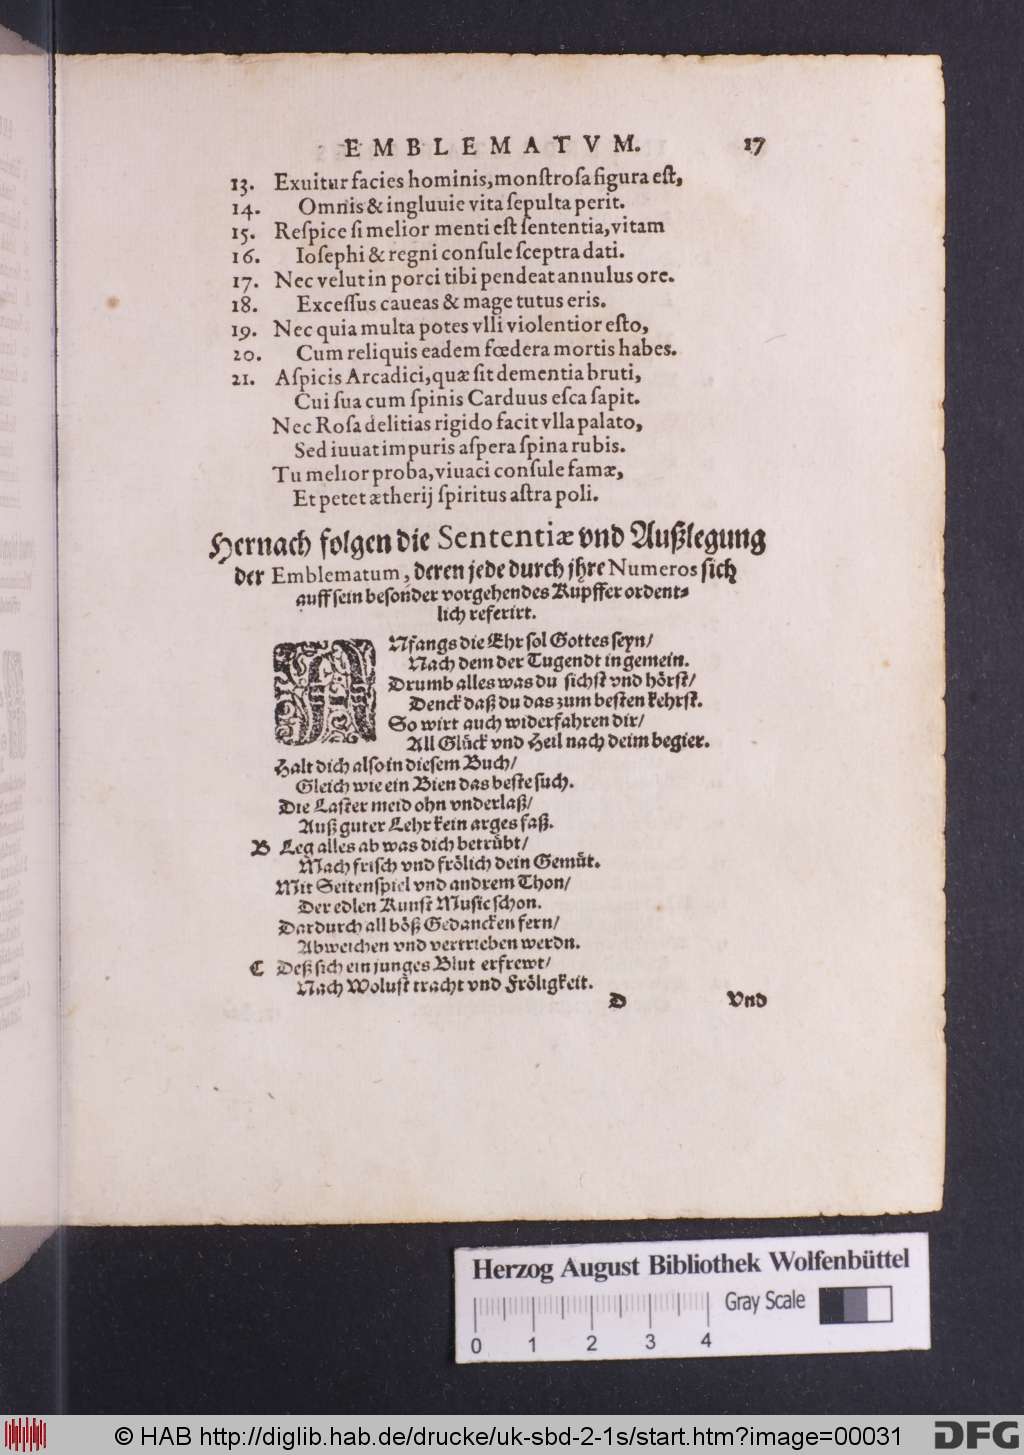 EMBLEMATVM. 17
13. Exuitur facies hominis, monſtroſa figura eſt,
14. Omnis & ingluuie vita ſepulta perit.
15. Reſpice ſi melior menti eſt ſententia, vitam
16. Ioſephi & regni conſule ſceptra dati.
17. Nec velut in porci tibi pendeat annulus ore.
18. Exceſſus caueas & mage tutus eris.
19. Nec quia multa potes vlli violentior eſto,
20. Cum reliquis eadem fœdera mortis habes.
21. Aſpicis Arcadici, quæ ſit dementia bruti,
Cui ſua cum ſpinis Carduus eſca ſapit.
Nec Roſa delitias rigido facit vlla palato,
Sed iuuat impuris aſpera ſpina rubis.
Tu melior proba, viuaci conſule famæ,
Et petet ætherij ſpiritus aſtra poli.
Hernach folgen die Sententiæ vnd Außlegung
der Emblematum, deren jede durch jhre Numeros ſich
auff ſein beſonder vorgehendes Kupffer ordent⸗
lich referirt.
ANfangs die Ehr ſol Gottes ſeyn/
Nach dem der Tugendt in gemein.
Drumb alles was du ſichſt vnd hörſt/
Denck daß du das zum beſten kehrſt.
So wirt auch widerfahren dir/
All Glück vnd Heil nach deim begier.
Halt dich alſo in dieſem Buch/
Gleich wie ein Bien das beſte ſuch.
Die Laſter meid ohn vnderlaß/
Auß guter Lehr kein arges faß.
B Leg alles ab was dich betrübt/
Mach friſch vnd frölich dein Gemüt.
Mit Seitenſpiel vnd andrem Thon/
Der edlen Kunſt Muſic ſchon.
Dardurch all böß Gedancken fern/
Abweichen vnd vertrieben werdn.
C Deß ſich ein junges Blut erfrewt/
Nach Woluſt tracht vnd Fröligkeit.
D Vnd
Herzog August Bibliothek Wolfenbüttel
Gray Scale
0 1 2 3 4
© HAB http://diglib.hab.de/drucke/uk-sbd-2-1s/start.htm?image=00031
DFG